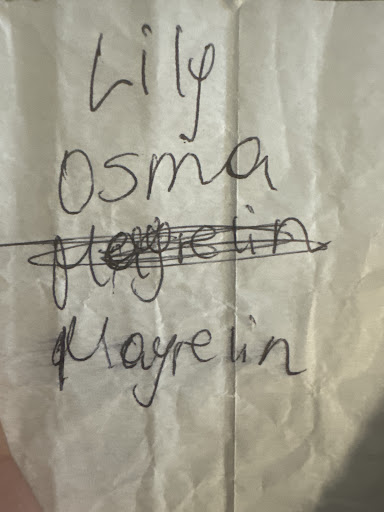 Lily
Osma
Mayrelin
Mayrelin